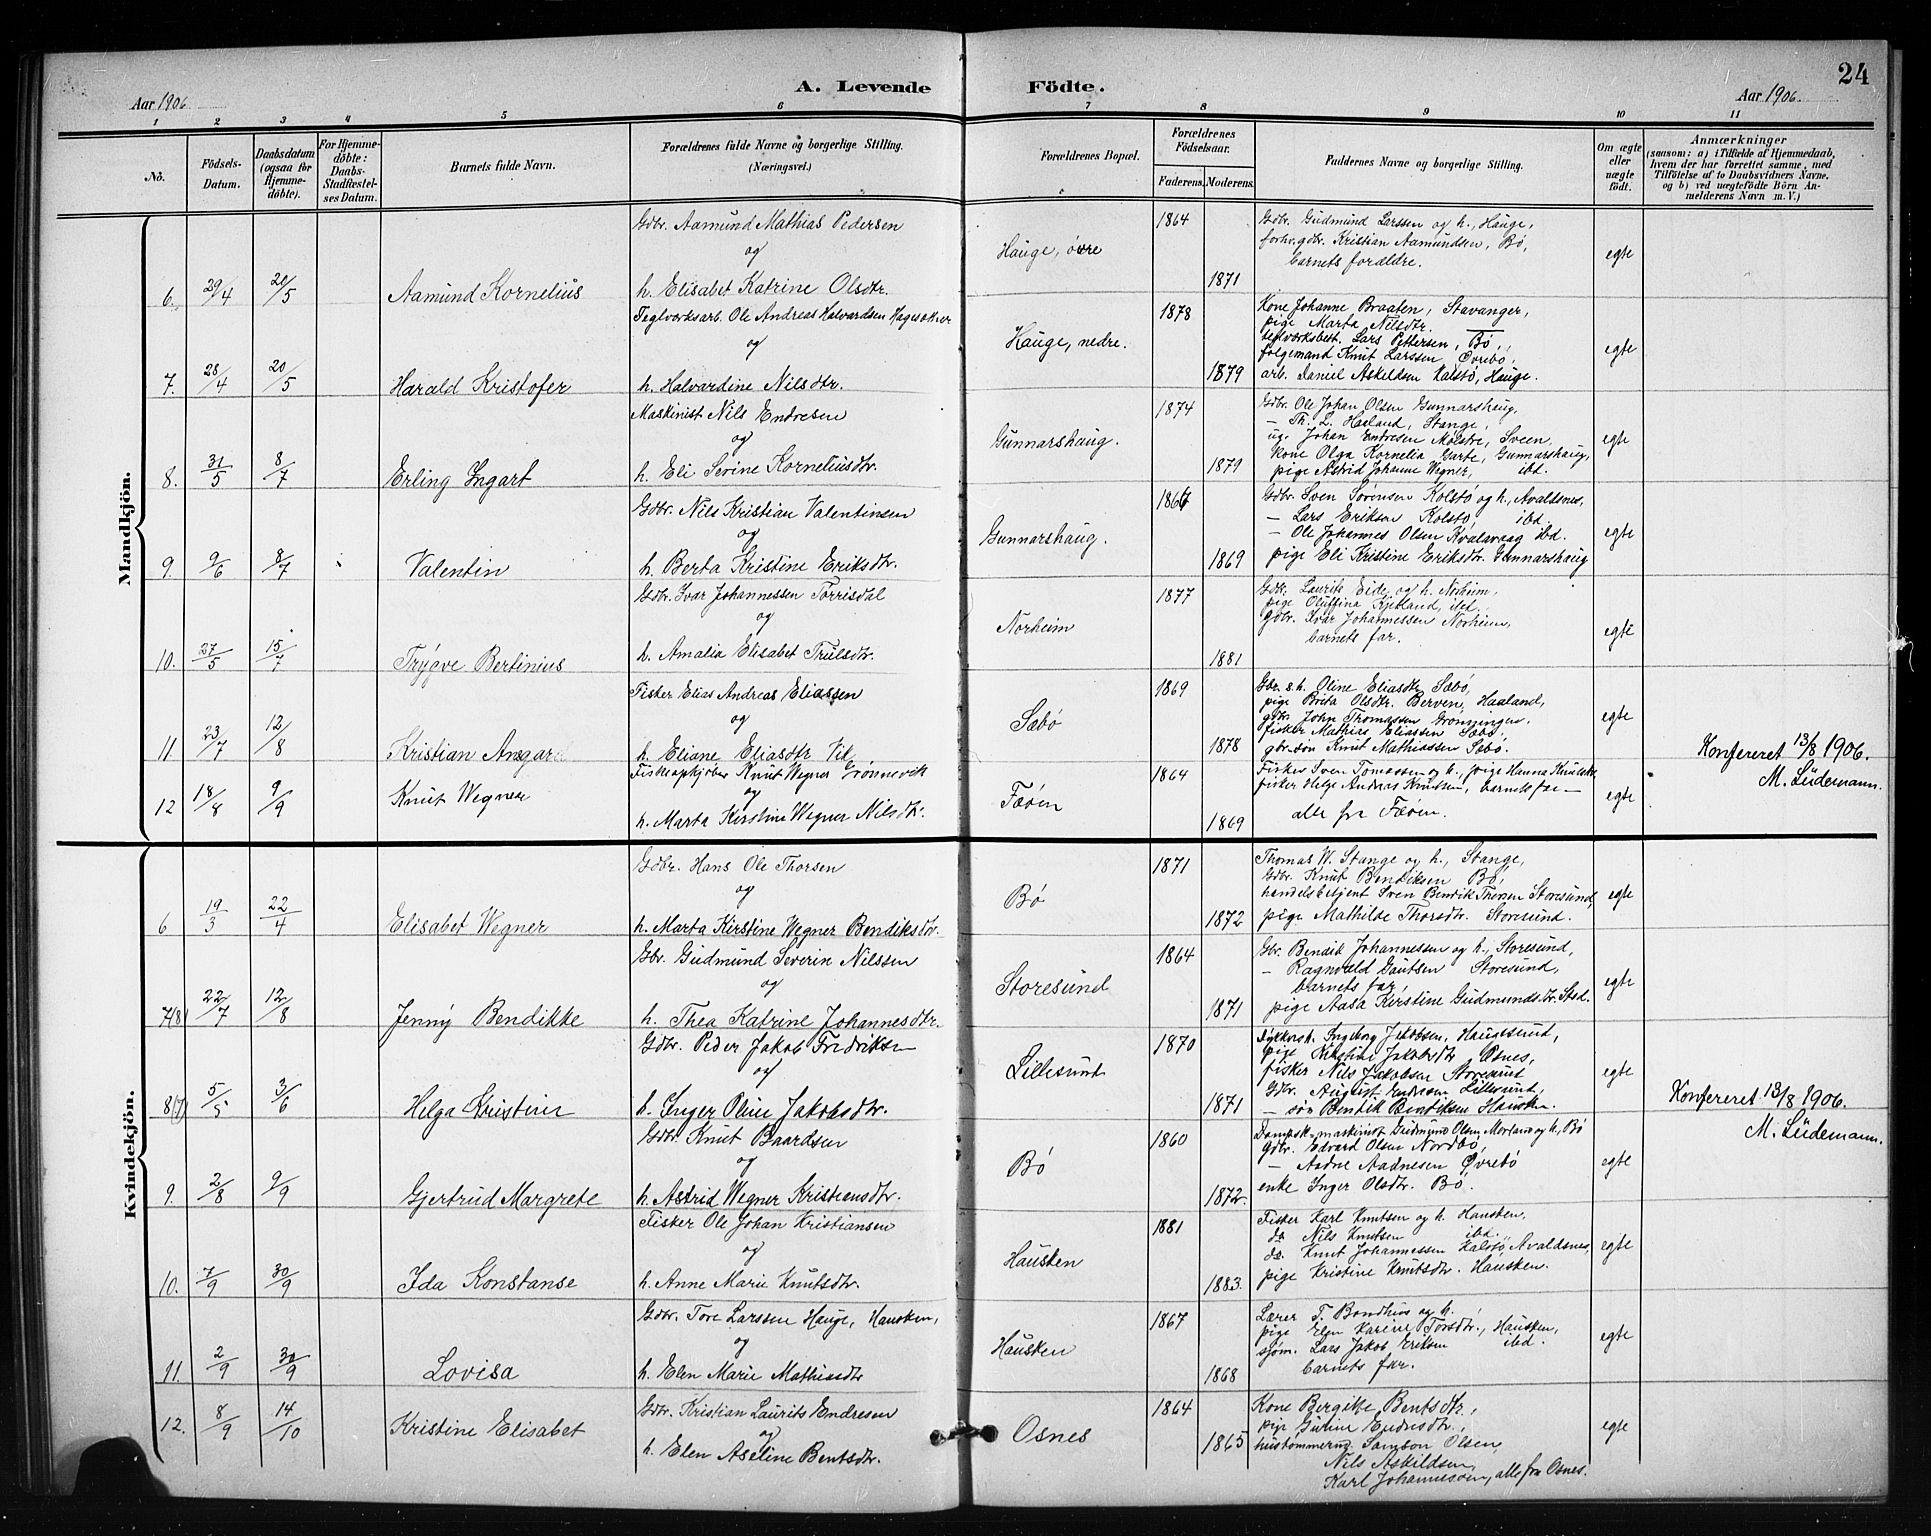 24
Aar 1906.
A. Levende Födte.
Aar 1906.
1 2 3 4 5 6 7 8 9 10 11
No.
Födsels-Datum.
Daabsdatum (ogsaa for Hjemmedöbte).
For Hjemmedöbte: Daabs-Stadfæstelses Datum.
Barnets fulde Navn.
Forældrenes fulde Navne og borgerlige Stilling. (Næringsvei.)
Forældrenes Bopæl.
Forældrenes Födselsaar.
Faderens. Moderens.
Faddernes Navne og borgerlige Stilling.
Om ægte eller uægte födt.
Anmærkninger
(saasom: a) i Tilfælde af Hjemmedaab, hvem der har forrettet samme, med Tilföielse af to Daabsvidners Navne, og b) ved uægtefödte Börn Anmelderens Navn m. V.)
Mandkjön.
Gdbr. Aamund Mathias Pedersen
og
6. 29/4 20/5 Aamund Kornelius h. Elisabet Katrine Olsdtr.
Hauge, övre 1864 1871
Gdbr. Gudmund Larssen og h., Hauge,
forhv. gdbr. Kristian Aamundsen, Bö,
barnets forældre.
egte
Teglverksarb. Ole Andreas Halvardsen
og
7. 28/4 20/5 Harald Kristofer h. Halvardine Nilsdtr.
Hauge, nedre. 1878 1879
Kone Johanne Braaten, Stavanger,
pige Marta Nilsdtr.
Lars Pettersen, Bö,
folgemand Knut Larssen Övrebö,
arb. Daniel Askildsen Kalstö, Hauge.
egte
Maskinist Nils Endresen
og
8. 31/5 8/7 Erling Ingart h. Eli Sevine Korneliusdtr.
Gunnarshaug. 1874 1879
Gdbr. Ole Johan Olsen Gunnarshaug,
— Th. L. Haaland, Stange,
ug. Johan Endresen Molstre, Sveen,
kone Olga Kornelia Garte, Gunnarshaug,
pige Astrid Johanne Wegner, ibd.
egte
Gdbr. Nils Kristian Valentinsen
og
9. 9/6 8/7 Valentin h. Berta Kristine Eriksdtr.
Gunnarshaug. 1869
Gdbr. Sven Sörensen Kolstö og h., Avaldsnes,
— Lars Eriksen Kolstö ibd.
— Ole Johannes Olsen Kvalavaag ibd.
pige Eli Kristine Eriksdtr. Gunnarshaug
egte
Gdbr. Ivar Johannessen Torrisdal
og
10. 27/5 15/7 Trygve Bertinius h. Amalia Elisabet Trulsdtr.
Norheim 1877 1881
Gdbr. Laurits Eide og h. Norheim,
pige Oluffina Kjetland, ibd.
gdbr. Ivar Johannessen Norheim,
barnets far.
egte
Fisker Elias Andreas Eliassen
og
11. 23/7 12/8 Kristian Ansgard h. Eliane Eliasdtr Vik
Sæbö 1869 1878
Gbr. s. h. Oline Eliasdtr Sæbö,
pige Brita Olsdtr. Berven, Haaland,
gdbr John Tromassen Grönningen,
fisker Mathias Eliassen Sæbö,
gbr. sön Knut Mathiassen Sæbö.
egte
Konfereret 13/8 1906.
M. Lüdemann.
Fiskeopkjöber Knut Wegner Grönnevik
og
12 18/8 9/9 Knut Wegner h. Marta Kirstine Wegner Nilsdtr.
Feöen 1864 1869
Fisker Sven Tomassen og h., pige Hanna
fisker Helge Andreas Knutsen, barnets far —
alle fra Feöen.
egte
Kvindekjön.
Gdbr. Hans Ole Thorsen
og
6 19/3 22/4 Elisabet Wegner h. Marta Kirstine Wegner Bendiksdtr.
Bö 1871 1872
Thomas W. Stange og h., Stange,
Gdbr. Knut Bendiksen Bö,
handelsbetjent Sven Bendik Thorsen Storesund,
pige Mathilde Thorsdtr. Storesund.
egte
Gbr. Gudmund Severin Nilssen
og
7(8) 22/7 12/8 Jenny Bendikke h. Thea Katrine Johannesdtr.
Storesund 1864 1871
Gbr. Bendik Johannessen og h., Storesund,
— Ragnvald Gautsen Storesund,
barnets far,
pige Aasa Kirstine Gudmundsdtr. Stsd.
egte
Gdbr. Peder Jakob Fredriksen
og
8(7) 5/5 3/6 Helga Kristine h. Inger Oline Jakobsdtr.
Lillesund 1870 1871
Ingeborg Jakobsen, Haugesund,
pige Kristine Jakobsdtr Osnes,
fisker Nils Jakobsen Storesund
Gdbr. August Endresen Lillesund,
— sön Bendik Bendiksen Hausken.
egte
Konfereret 13/8 1906.
M. Lüdemann.
Gdbr. Knut Baardsen
og
9. 2/8 9/9 Gjertrud Margrete h. Astrid Wegner Kristiansdtr.
Bö 1860 1872
Dampsk.-maskinist Gudmund Olsen Morland og h., Bö
Gdbr. Edvard Olsen Nordbö,
— Aadne Aadnesen Övrebö
enke Inger Olsdtr. Bö.
egte
Fisker Ole Johan Kristiansen
og
10. 7/9 30/9 Ida Konstanse h. Anne Marie Knutsdtr.
Hausken 1881 1883.
Fisker Karl Knutsen og h. Hausken.
do. Nils Knutsen ibd.
do. Knut Johannessen Kalstö, Avaldsnes,
pige Kristine Knutsdtr. Hausken.
egte
Gdbr. Tore Larssen Hauge, Hausken,
og
11. 2/9 30/9 Lovisa h. Elen Marie Mathiasdtr
Hausken 1867 1868
Lærer T. Bondhus og h.
pige Elen Karine Torsdtr., Hausken,
sjöm. Lars Jakob Eriksen ibd.
barnets far.
egte
Gdbr. Kristian Laurits Endresen
og
12. 8/9 14/10 Kristine Elisabet h. Elen Aseline Bentsdtr.
Osnes 1864 1865
Kone Bergitte Bentsdtr,
pige Gurine Endresdtr.,
hustömmerm. Samson Olsen,
Nils Askildsen,
Karl Johannessen, alle fra Osnes.
egte